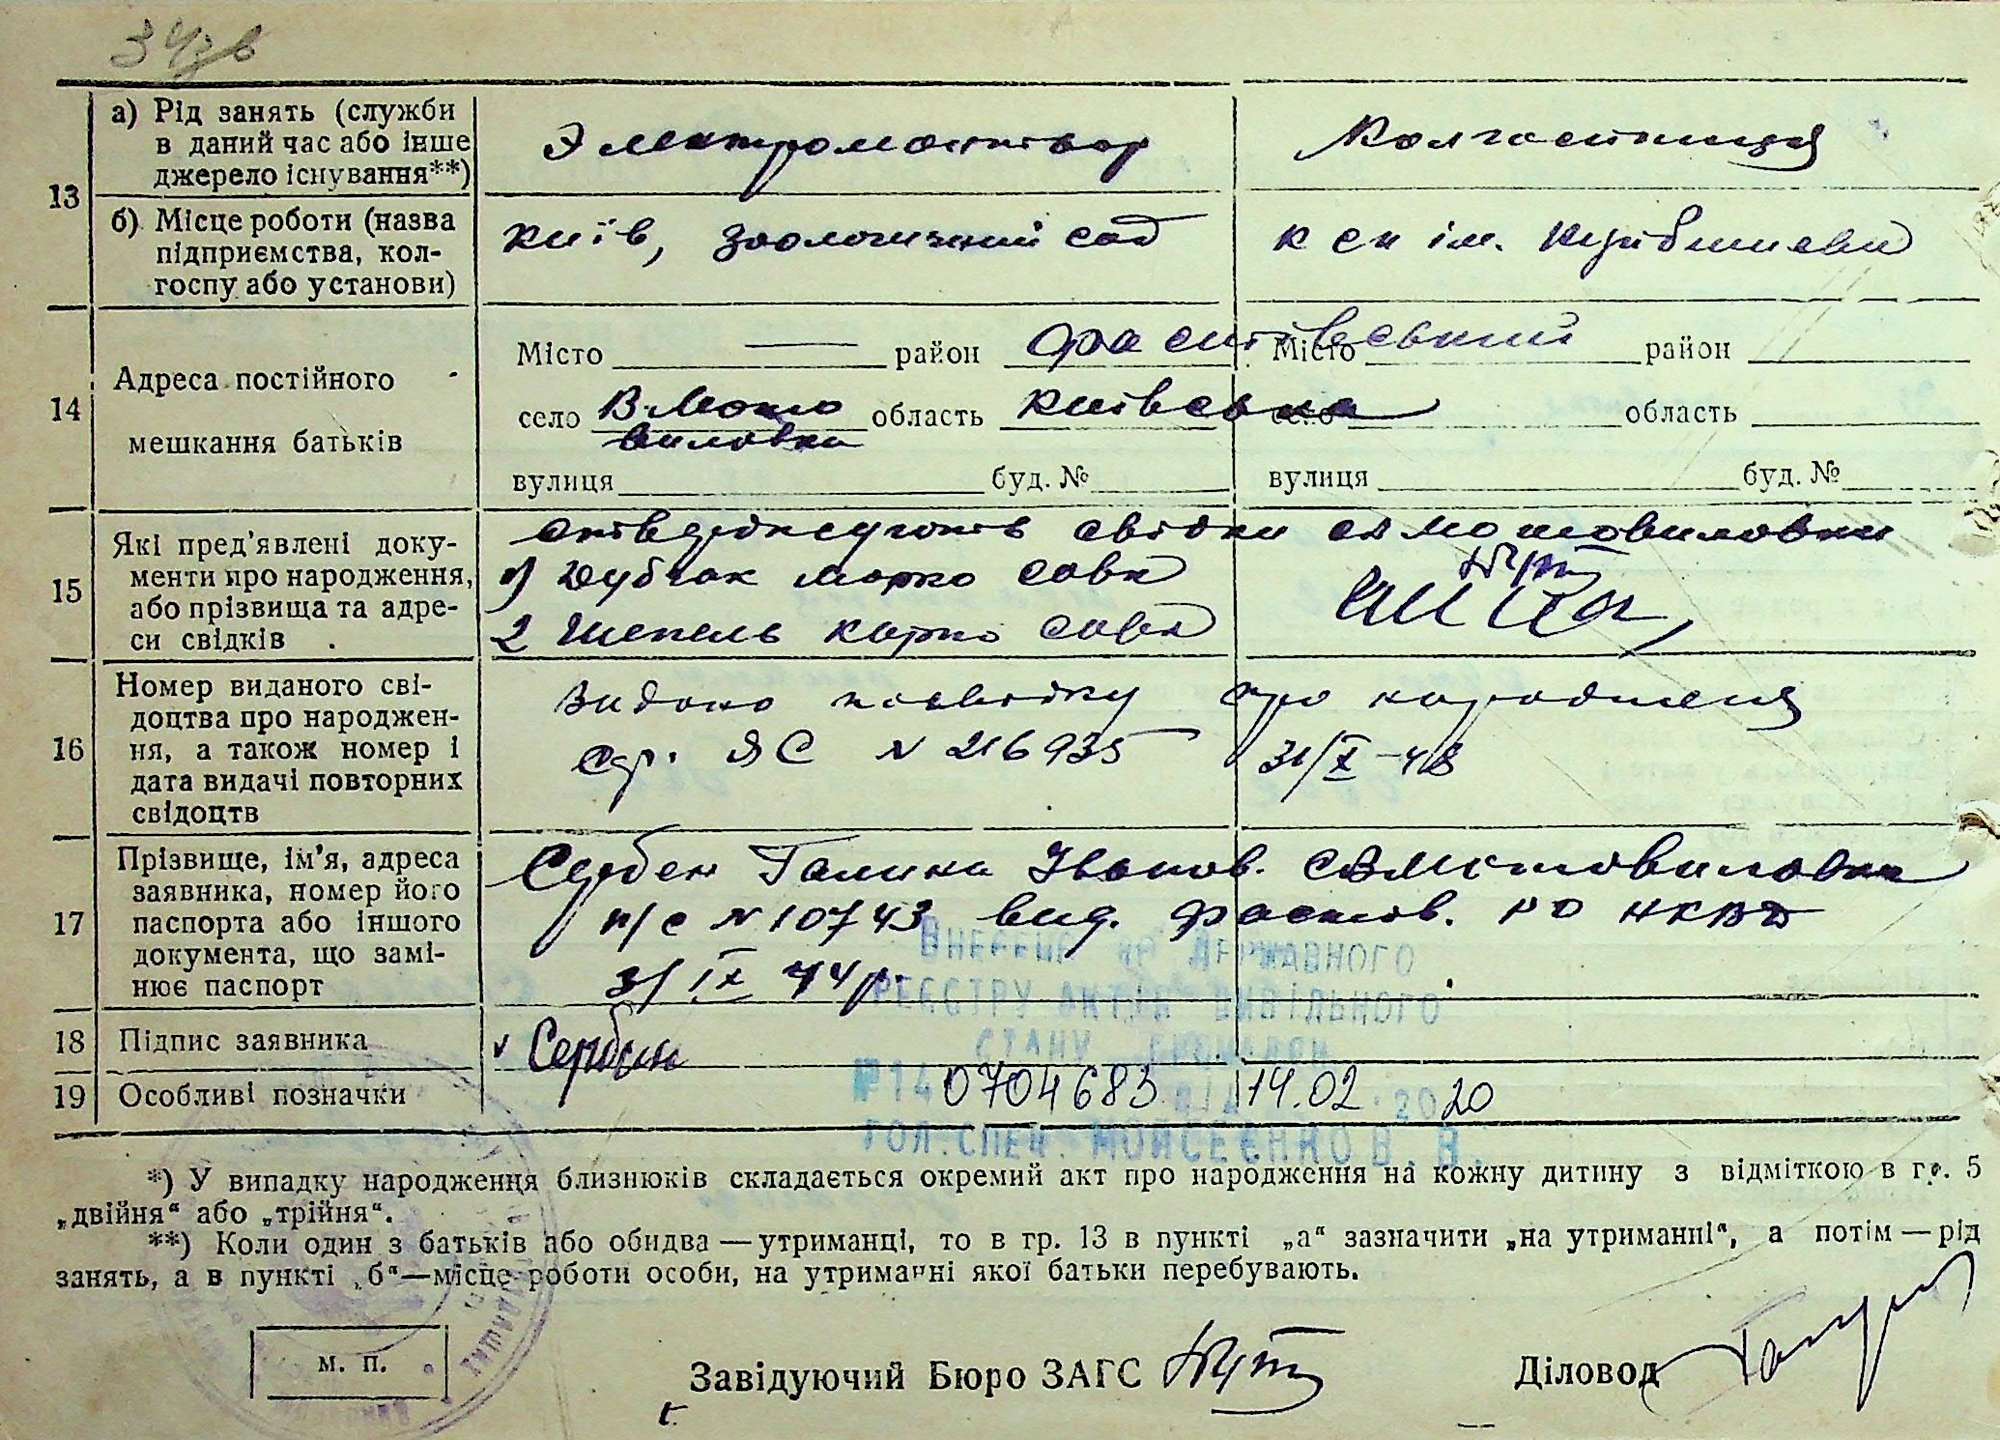 34зв
13
а) Рід занять (служби
в даний час або інше
джерело існування**)
Электромонтьор
Колгоспниця
б) Місце роботи (назва
підприємства, кол-
госпу або установи)
Київ, Зоологичний сад
к сп ім. Куйбишева
14
Адреса постійного
мешкання батьків
Місто — район Фастівський
Місто район
село В-Мото
виловка область Київська
село область
вулиця буд. №
вулиця буд. №
15
Які пред’явлені доку-
менти про народження,
або прізвища та адре-
си свідків
свідки
1) Дубчак Марко Сава
2 Шепель Карпо Сава
16
Номер виданого сві-
доцтва про народжен-
ня, а також номер і
дата видачі повторних
свідоцтв
Видано посвідку про народження
ср. ЯС N 216935 31/X-48
17
Прізвище, ім’я, адреса
заявника, номер його
паспорта або іншого
документа, що замі-
нює паспорт
Сербен Галина Іванов.
п/с N 10743 вид. Фастов. РО НКВД
31 IX 44р.
Внесено до Державного
реєстру актів цивільного
стану громадян
№140704683 14.02.2020
Гол. спец. Мойсеєнко В. В.
18
Підпис заявника
v Сербин
19
Особливі позначки
*) У випадку народження близнюків складається окремий акт про народження на кожну дитину з відміткою в гр. 5
„двійня“ або „трійня“.
**) Коли один з батьків або обидва — утриманці, то в гр. 13 в пункті „а“ зазначити „на утриманні“, а потім — рід
занять, а в пункті „б“—місце роботи особи, на утриманні якої батьки перебувають.
м. п.
Завідуючий Бюро ЗАГС
Діловод